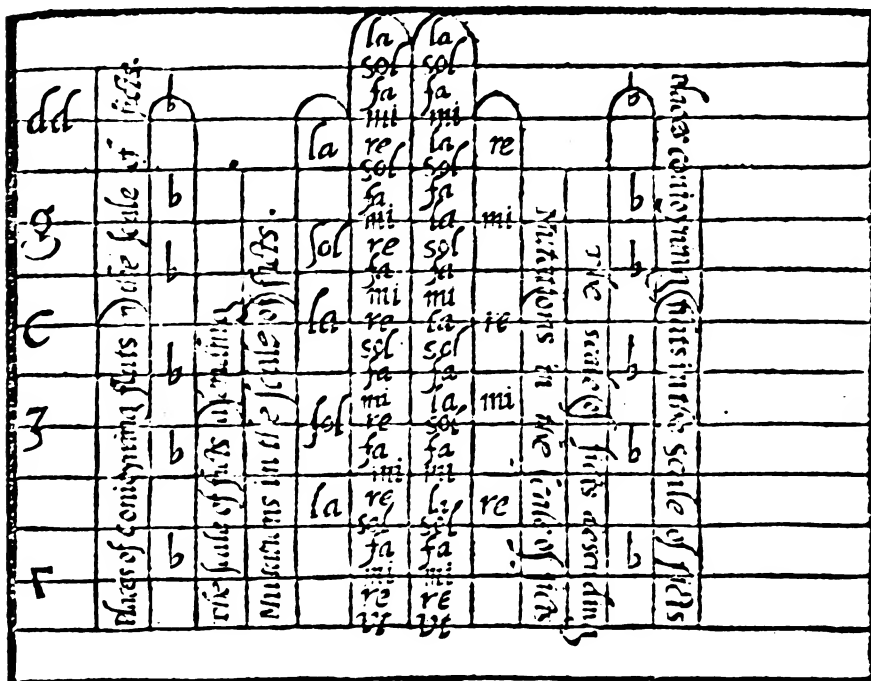 dd
g
c
Γ
Places of flats in the scale of ficts.
b
b
b
b
b
b
The scale of ficts
Mutations in the scale of ficts.
la
sol
la
sol
la
la
sol
fa
mi
re
sol
fa
mi
re
fa
mi
re
sol
fa
mi
re
fa
mi
re
sol
fa
mi
re
Vt
la
sol
fa
mi
la
sol
fa
la
sol
fa
mi
la
sol
fa
la
sol
fa
mi
la
sol
fa
mi
re
Vt
re
mi
re
mi
re
Mutations in the scale of ficts
The scale of ficts descending
b
b
b
b
b
b
Places conioyning flats in the scale of ficts